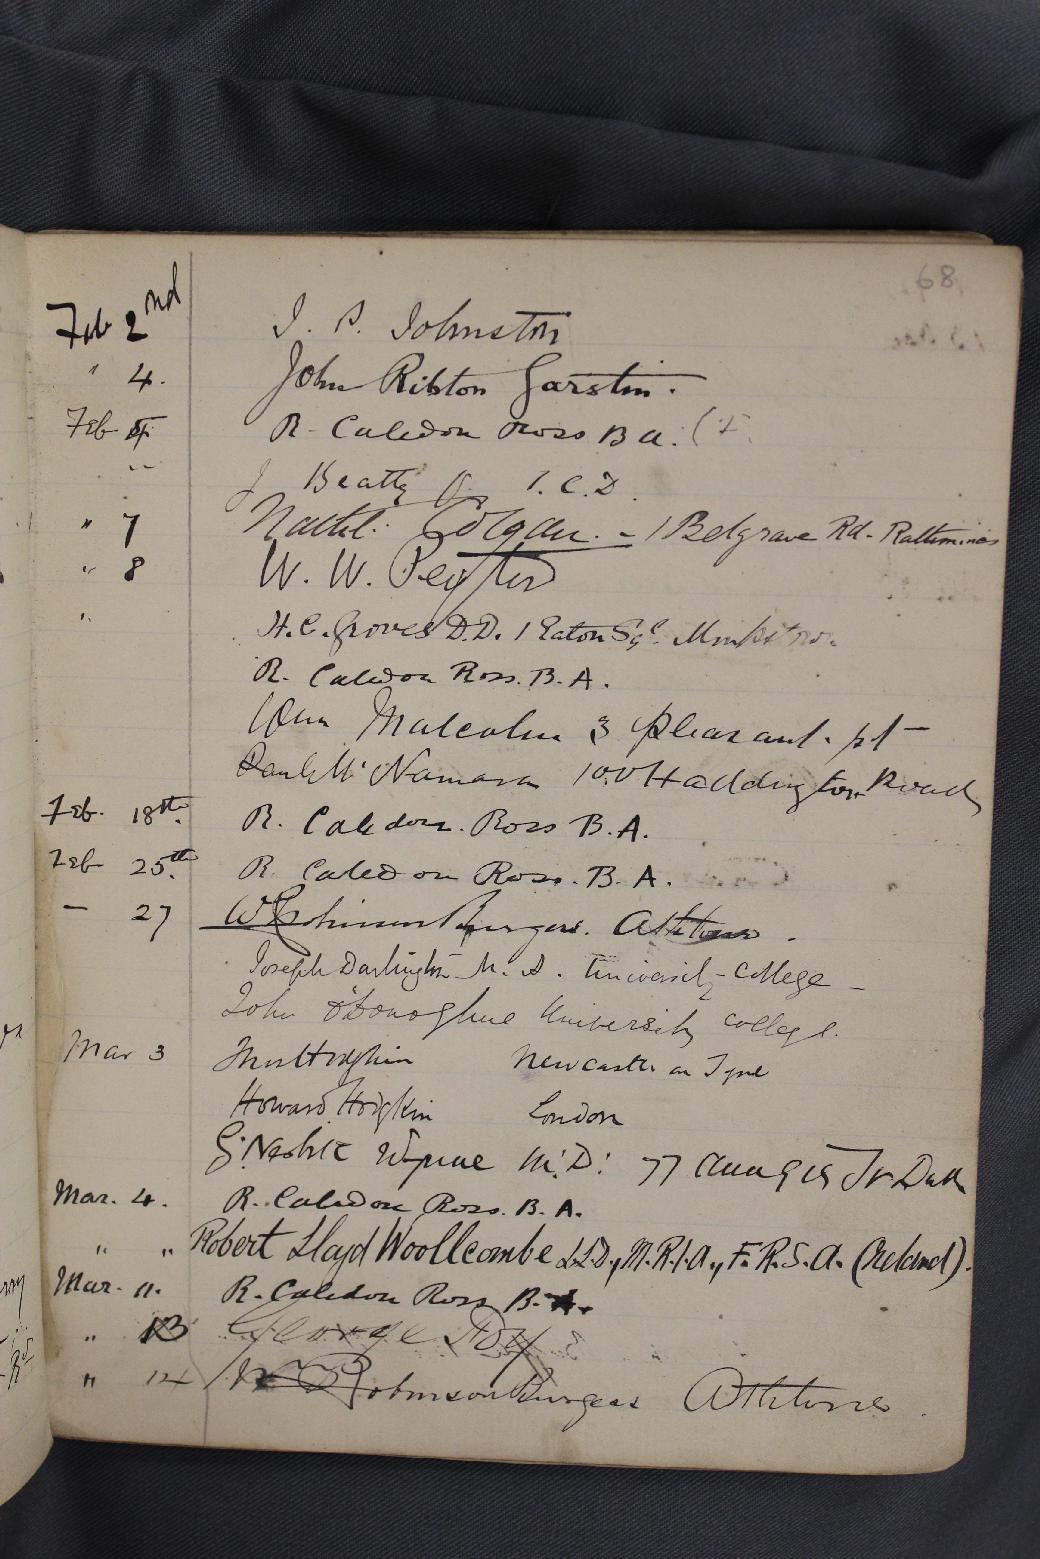 68
Feb 2nd J. P. Johnston
" 4. John Ribton Garstin.
Feb 4. R. Caledon Ross B a.
" J Beatty Jr T.C.D.
" 7 Nathl. Colgan. - 1 Belgrave Rd. Rathmines
" 8 W. W.
" H. C. Groves D.D. 1 Eaton Sqe. Monkstown
R. Caledon Ross. B.A.
Wm Malcolm 3 Pleasant pl
McNamara 100 Haddington Road
Feb. 18th. R. Caledon. Ross B.A.
Feb 25th. R Caledon Ross. B. A.
- 27 W E Robinson Burgess. Athlone.
Joseph Darlington M. A. University College -
John O'Donoghue University College.
Mar 3 Thos Hodgkin Newcastle on Tyne
Howard Hodgkin London
G. Neshitt Wynne M.D. 77 Aungier St Dub
Mar. 4. R. Caledon Ross. B. A.
" " Robert Lloyd Woollcombe LL.D., M.R.I.A., F.R.S.A. (Ireland).
Mar. 11. R. Caledon Ross B. A.
" 13 George
" 14 W E Robinson Burgess Athlone.